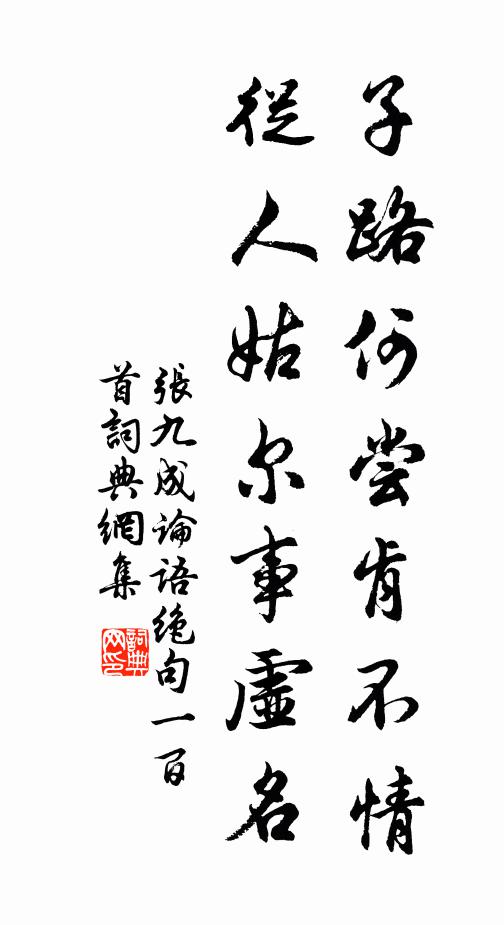 子路何尝肯不情
從人姑尔事虛名
張九成論語絶句一百
首詞典網集
詞典网印